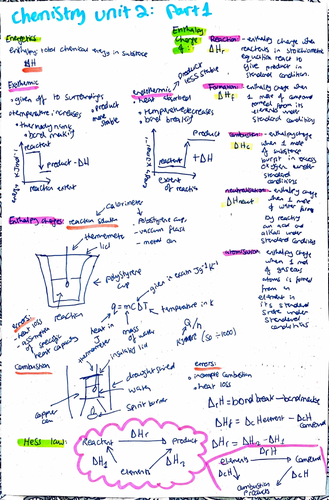 Chemistry unit 2: Part 1
Energetics
Enthalpy total chemical energy in substance
ΔH
Exothermic
• given off to surroundings
• temperature increases
• product more stable
• bond making
reactant
product -ΔH
reaction extent
endothermic
product less stable
• heat absorbed
• temperature decreases
bond breaking
Product
reactant
+ΔH
extent of reaction
Enthalpy Change of
Reaction - enthalpy change when
ΔHr
reactants in stoichiometric
equation react to
give product in
standard condition.
Formation - enthalpy change
ΔHf
when 1 mole of compound
formed from its
elements under
standard condition
Combustion - enthalpy change
ΔHc
when 1 mole
of substance
burnt in excess
of oxygen under
standard
conditions
neutralisation - enthalpy change
ΔHneut
when 1 mole
of water forms
by reacting
an acid and
alkali under
standard conditions
atomisation - enthalpy change
when 1 mol
of gaseous
atoms is formed
from an
element in
its
standard
state under
standard
conditions
Enthalpy changes: reaction solution
calorimeter
- Polystyrene cup
- vacuum flask
- metal can
thermometer
lid
polystyrene cup
reaction
given in exam Jg⁻¹K⁻¹
Q = mcΔT
temperature in K
heat in J
mass of water
Q/n
(÷1000)
errors:
• heat loss
of specific
heat capacity
Combustion
thermometer
insulated lid
draught shield
water
spirit burner
copper can
errors:
• incomplete combustion
• heat loss
Hess law
Reactant
ΔHr
Product
ΔH1
ΔH2
elements
ΔrH = bond break - bond make
ΔHf = ΔcH element - ΔcH compound
ΔHr = ΔH2 - ΔH1
elements
ΔfH
Compound
ΔcH
ΔcH
combustion products